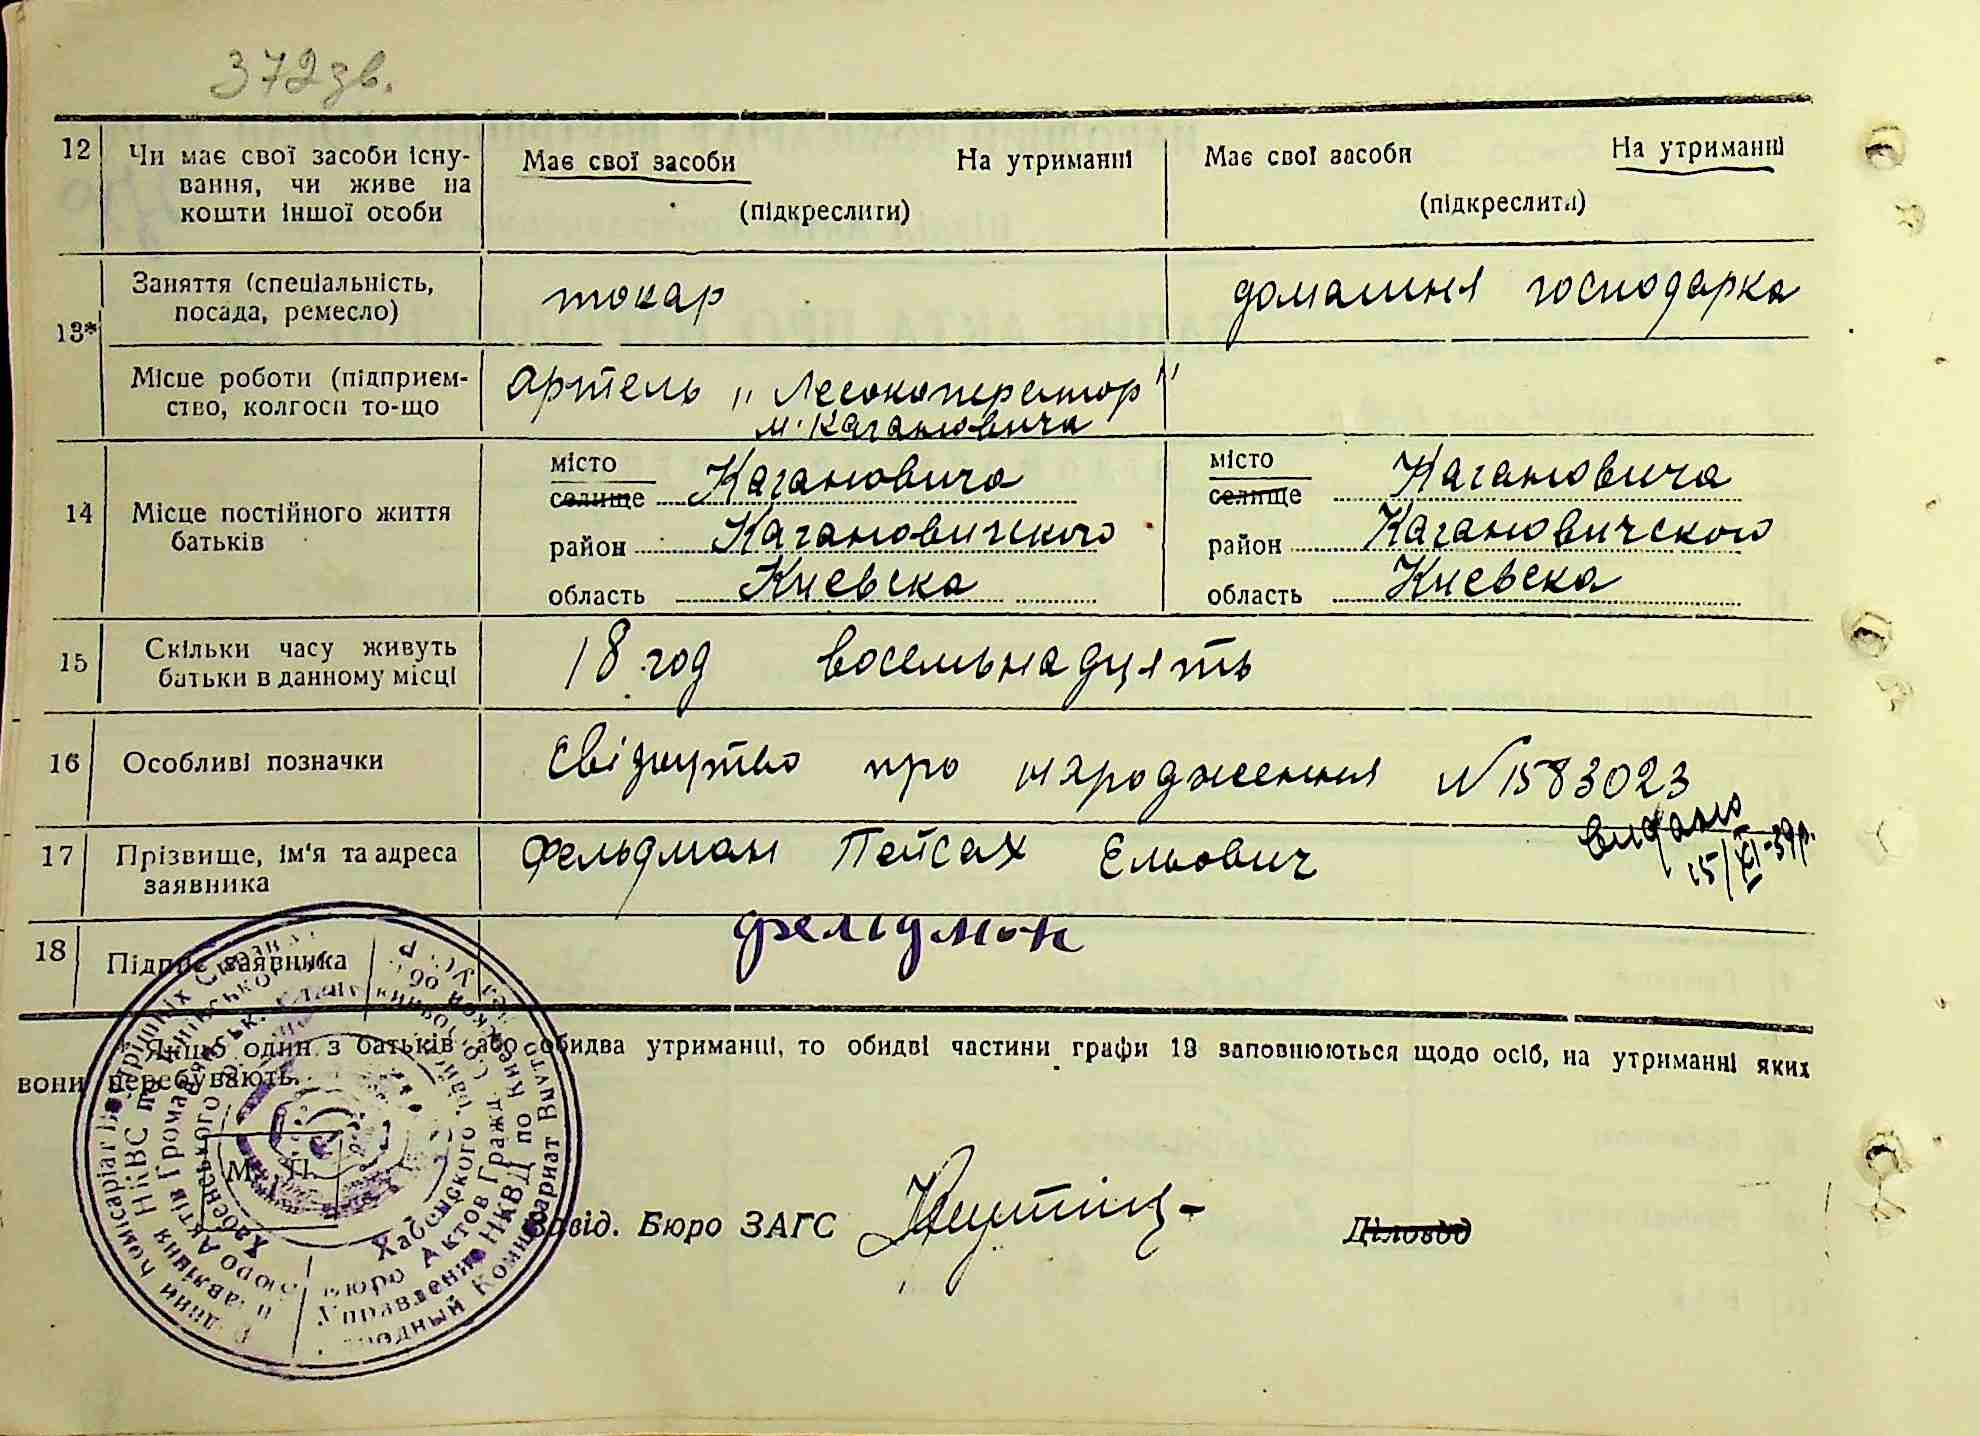 372зв.
12 Чи має свої засоби існу- Має свої засоби На утриманні Має свої засоби На утриманні
вання, чи живе на
кошти іншої особи (підкреслити) (підкреслити)
13* Заняття (спеціальність, токар домашня господарка
посада, ремесло)
Місце роботи (підприєм- артель „
ство, колгосп то-що м. Кагановича
14 Місце постійного життя
батьків
місто Кагановича місто Кагановича
селище селище
район Кагановичского район Кагановичского
область Киевска область Киевска
15 Скільки часу живуть 18 год восемьнадцять
батьки в данному місці
16 Особливі позначки Свідоцтво про народження N 1583023
видано
15/XI-39р.
17 Прізвище, ім'я та адреса Фельдман Пейсах Ельович
заявника
18 Підпис заявника фельдман
* Якщо один з батьків або обидва утриманці, то обидві частини графи 13 заповнюються щодо осіб, на утриманні яких
вони перебувають.
М. П.
Завід. Бюро ЗАГС Діловод
Хабенского
Бюро Актов Гражд.
Управлению НКВД по